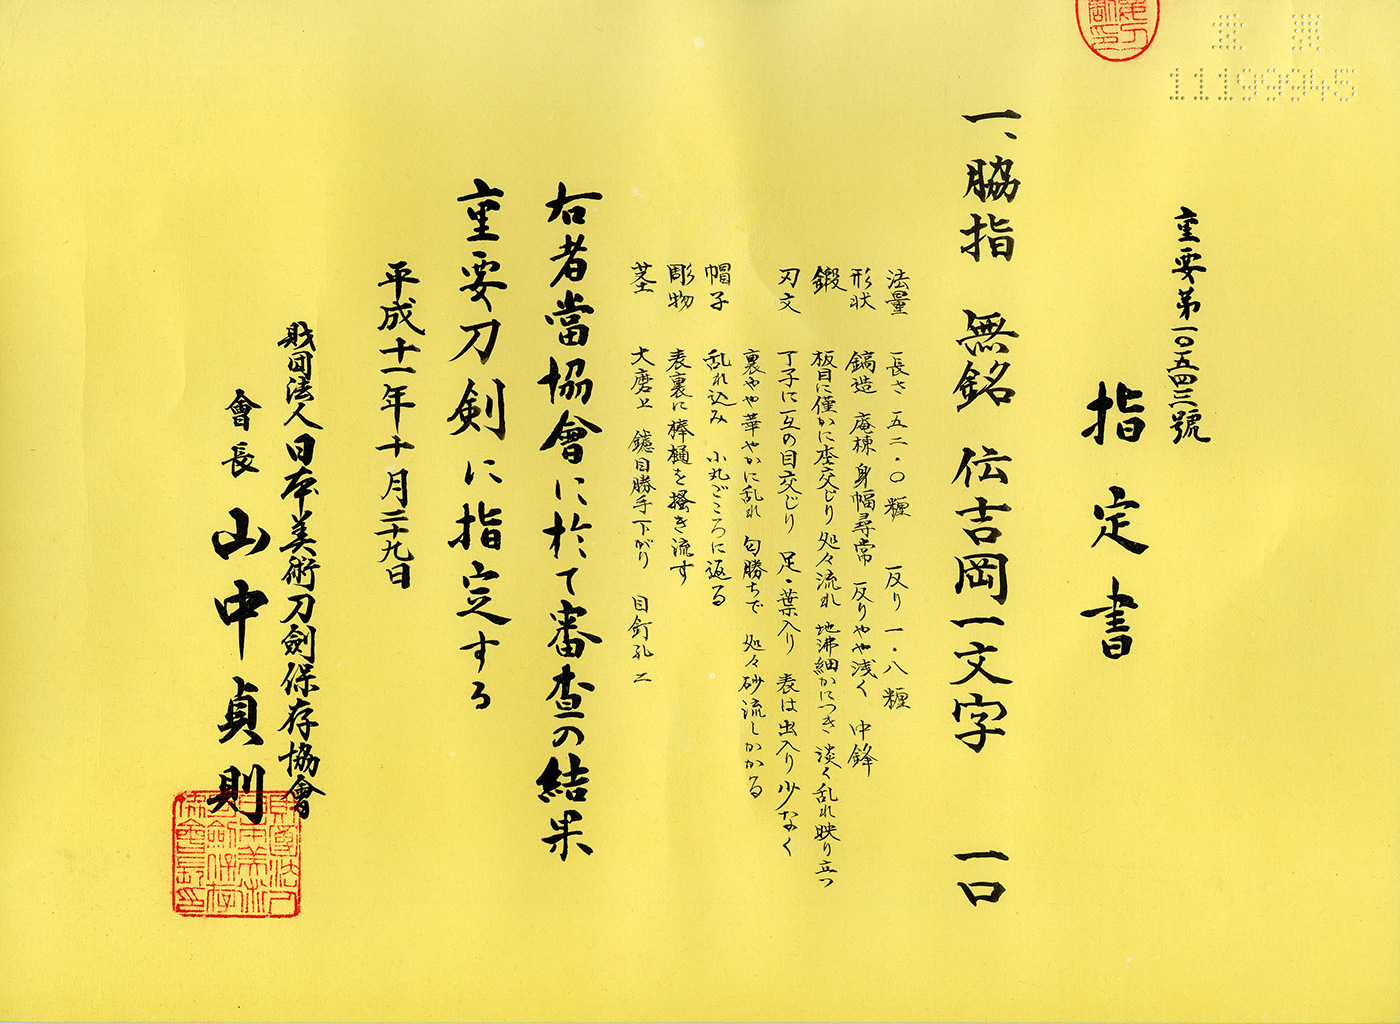 11199945
重要第一〇五四三號
指定書
一、脇指 無銘 伝吉岡一文字 一口
法量 長さ 五二・〇糎 反り 一・八糎
形状 鎬造 庵棟 身幅尋常 反りやや浅く 中鋒
鍛 板目に僅かに杢交じり 処々流れ 地沸細かにつき 淡く乱れ映り立つ
刃文 丁子に互の目交じり 足・葉入り 表は出入り少なく
裏やや華やかに乱れ 匂勝ちで 処々砂流しかかる
帽子 乱れ込み 小丸ごころに返る
彫物 表裏に棒樋を掻き流す
茎 大磨上 鑢目勝手下がり 目釘孔二
右者當協會に於て審査の結果
重要刀剣に指定する
平成十一年十月二十九日
財団法人日本美術刀劍保存協會
會長 山中貞則